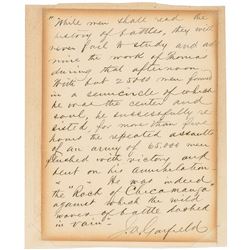 "While men shall read the
history of battles, they will
never fail to study and ad-
mire the work of Thomas
during that afternoon
With but 25000 men formed
in a semicircle of which
he was the center and
soul, he successfully re-
sisted for more than five
hours the repeated assaults
of an army of 65.000 men
flushed with victory and
bent on his annihilation
" " " He was indeed
the "Rock of Chicamauga"
against which the wild
waves of battle dashed
in vain"
J. A. Garfield